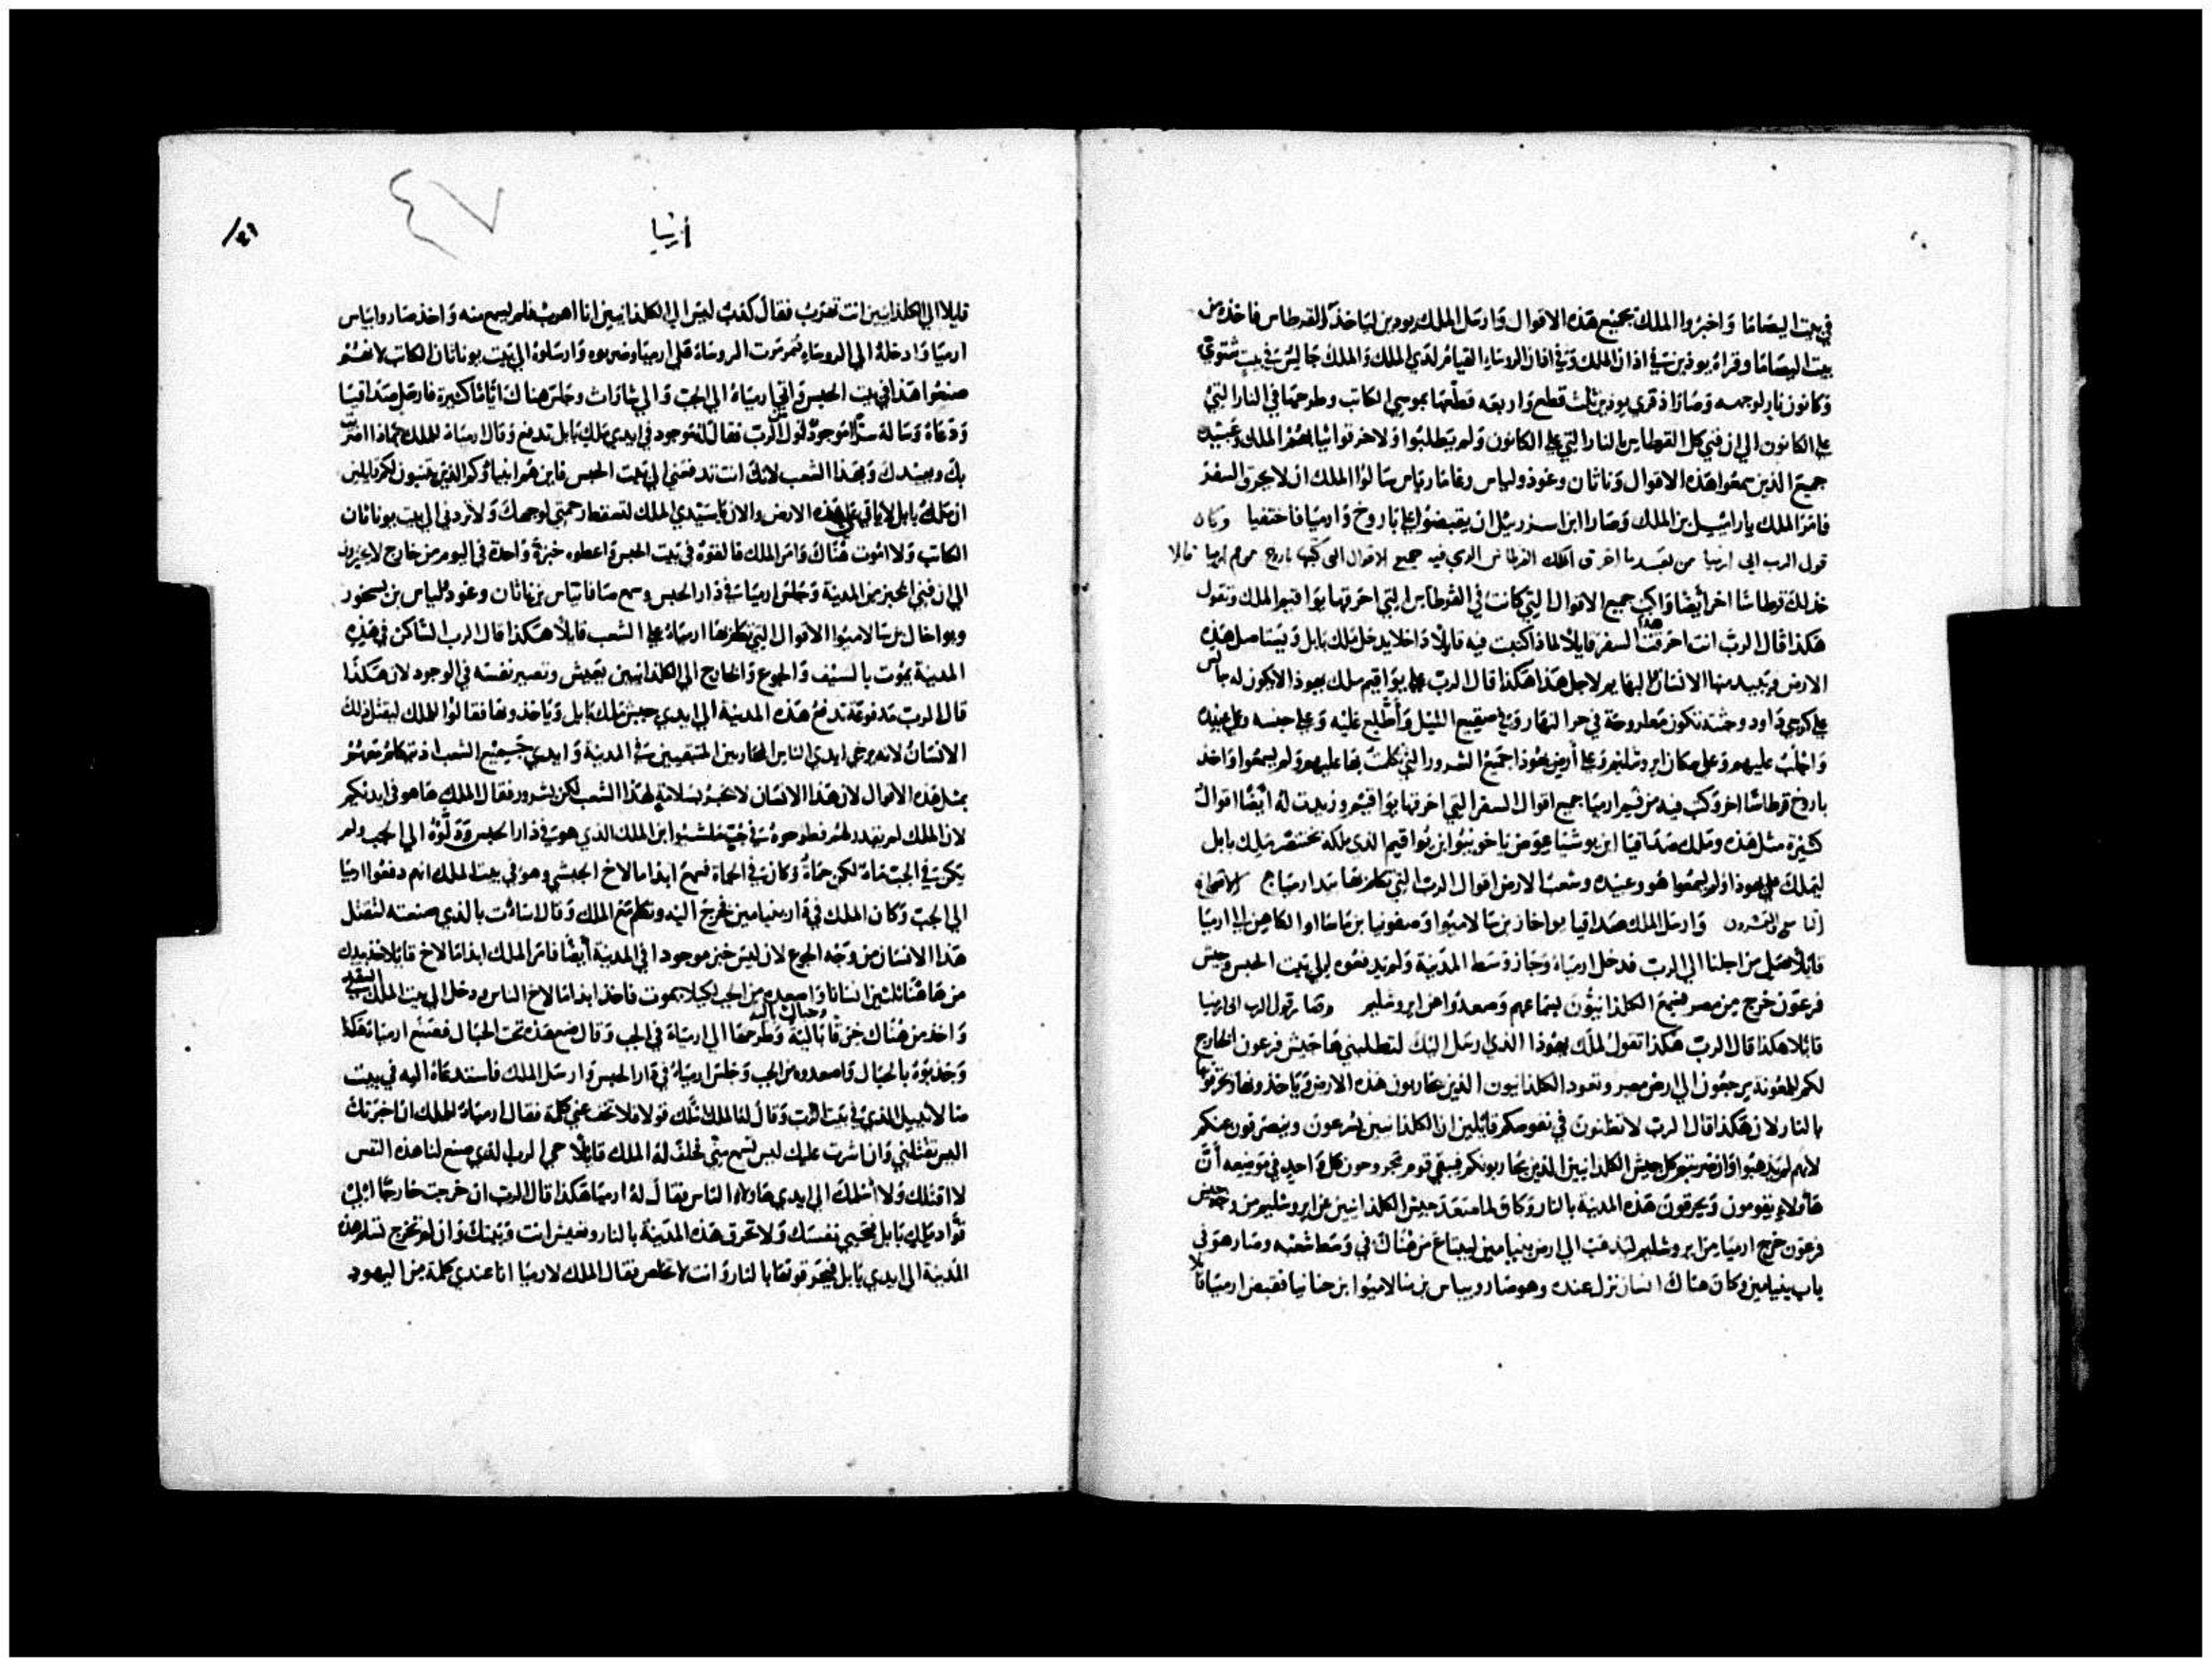 في بيت اليصاما واخبروا الملك بجميع هذه الاقوال وارسل الملك يودين لياخذ القرطاس فاخذه من
بيت اليصاما وقراه يودين في اذان الملك وفي اذان الروساء القيام لدي الملك والملك جالس في بيت شتوي
وكانون نار لوجهه وصار اذ قري يودين ثلث قطع واربعه قطعها بموسي الكاتب وطرحها في النار التي
علي الكانون الي ان فني كل القرطاس بالنار التي علي الكانون ولم يتطلبوا ولا خرقوا ثيابهم الملك وعبيده
جميع الذين سمعوا هذه الاقوال وناثان وغودولياس وغامارياس سالوا الملك ان لا يحرق السفر
فامر الملك يارامييل بن الملك وصارا ابن اسزرييل ان يقبضوا علي باروخ وارميا فاختفيا وكان
قول الرب الي ارميا من بعد ما احرق الملك القرطاس الذي فيه جميع الاقوال التي كتبها باروخ من فم ارميا قايلا
خذ لك قرطاسا اخر ايضا واكتب جميع الاقوال التي كانت في القرطاس التي احرقها يواقيم الملك وتقول
هكذا قال الرب انت احرقت هذا السفر قايلا لماذا كتبت فيه قايلا داخلا يدخل ملك بابل ويستاصل هذه
الارض ويبيد منها الانسان والبهايم لاجل هذا هكذا قال الرب علي يواقيم ملك يهوذا لا يكون له جالس
علي كرسي داود وجثته تكون مطروحة في حر النهار وفي صقيع الليل واطلع عليه وعلي جنسه وعلي عبيده
واجلب عليهم وعلي سكان ايروشليم وعلي ارض يهوذا جميع الشرور التي تكلمت بها عليهم ولم يسمعوا واخذ
باروخ قرطاسا اخر وكتب فيه من فم ارميا جميع اقوال السفر التي احرقها يواقيم وزيدت له ايضا اقوال
كثيرة مثل هذه وملك صداقيا ابن يوشيا عوض ياخونيو ابن يواقيم الذي ملكه بختنصر ملك بابل
ليملك علي يهوذا ولم يسمعوا هو وعبيده وشعب الارض اقوال الرب التي تكلم بها بيد ارميا الاصحاح
وارسل الملك صداقيا يواخاز بن سالاميوا وصفونيا بن ماساوا الكاهن الي ارميا
قايلا صل من اجلنا الي الرب فدخل ارمياه وجاز وسط المدينة ولم يدفعوه الي بيت الحبس وجيش
فرعون خرج من مصر فسمع الكلدانيون بسماعهم وصعدوا من ايروشليم وصار قول الرب الي ارميا
قايلا هكذا قال الرب هكذا تقول لملك يهوذا الذي ارسل اليك لتطلبني ها جيش فرعون الخارج
لكم للمعونة يرجعون الي ارض مصر وتعود الكلدانيون الذين يحاربون هذه الارض وياخذونها ويحرقونها
بالنار لان هكذا قال الرب لا تظنون في نفوسكم قايلين ان الكلدانيين يسرعون وينصرفون عنكم
لانهم لم يذهبوا وان ضربتم كل جيش الكلدانيين الذين يحاربونكم فبقي قوم مجروحون كل واحد في موضعه ان
هاولاء يقومون ويحرقون هذه المدينة بالنار وكان لما صعد جيش الكلدانيين عن ايروشليم من وجه جيش
فرعون خرج ارميا من ايروشليم ليذهب الي ارض بنيامين ليبتاع من هناك في وسط شعبه وصار هو في
باب بنيامين وكان هناك انسان نزل عنده وهو صاروبياس بن سالاميوا ابن حنانيا فقبض ارميا قا
ارميا
٤٧
قليلا الي الكلدانيين انت تهرب فقال كذب ليس الي الكلدانيين انا اهرب فلم يسمع منه واخذ صاروبياس
ارميا وادخله الي الروساء فتمرمرت الروساء علي ارميا وضربوه وارسلوه الي بيت يوناثان الكاتب لانهم
صنعوا هذا في بيت الحبس واتي ارمياه الي الجب والي شاراث وجلس هناك اياما كثيرة فارسل صداقيا
ودعاه وساله سرا اتوجد قول من الرب فقال له توجد في ايدي ملك بابل تدفع وقال ارمياه للملك بماذا اضررت
بك وبعبيدك وبهذا الشعب لانك انت تدفعني الي بيت الحبس فاين هم انبياوكم الذين تنبون لكم قايلين
ان ملك بابل لا ياتي علي هذه الارض والان يا سيدي الملك لتسقط رحمتي لوجهك ولا تردني الي بيت يوناثان
الكاتب ولا اموت هناك وامر الملك فالقوه في بيت الحبس واعطوه خبزة واحدة في اليوم من خارج
الي ان فني الخبز من المدينة وجلس ارمياه في دار الحبس وسمع سافاتياس بن ناثان وغودلياس بن بسخور
ويواخال بن سالاميوا الاقوال التي تكلم بها ارمياه علي الشعب قايلا هكذا قال الرب الساكن في هذه
المدينة يموت بالسيف والجوع والخارج الي الكلدانيين يعيش وتصير نفسه في الوجود لان هكذا
قال الرب مدفوعة تدفع هذه المدينة الي ايدي جيش ملك بابل وياخذونها فقالوا للملك ليقتل ذلك
الانسان لانه يرخي ايدي الناس المحاربين المتبقيين في المدينة وايدي جميع الشعب اذ تكلم معهم
بمثل هذه الاقوال لان هذا الانسان لا يخبر بسلامة لهذا الشعب لكن بشرور فقال الملك ها هو في ايديكم
لان الملك لم يقدر لهم فطرحوه في جب ملشيوا ابن الملك الذي هو في دار الحبس ودلوه الي الجب ولم
يكن في الجب ماء لكن حماة وكان في الحماة فسمع ابدامالاخ الحبشي وهو في بيت الملك انهم دفعوا ارميا
الي الجب وكان الملك في دار بنيامين فخرج اليه وتكلم مع الملك وقال اساءت بالذي صنعته لتقتل
هذا الانسان من وجه الجوع لان ليس خبز موجودا في المدينة ايضا فامر الملك ابدامالاخ قايلا خذ بيدك
من هاهنا ثلثين انسانا واصعده من الجب لكيلا يموت فاخذ ابدامالاخ الناس ودخل الي بيت الملك السفلي
واخذ من هناك خرقا بالية وحبالا بالية وطرحها الي ارمياه في الجب وقال ضع هذه تحت الحبال فصنع ارمياه هكذا
وجذبوه بالحبال واصعدوه من الجب وجلس ارمياه في دار الحبس وارسل الملك فاستدعاه اليه في بيت
سالاثييل الذي في بيت الرب وقال له الملك اسالك قولا فلا تخف عني كلمة فقال ارمياه للملك ان اخبرتك
اليس تقتلني وان اشرت عليك ليس تسمع مني فحلف له الملك قايلا حي الرب الذي صنع لنا هذه النفس
لا اقتلك ولا اسلمك الي ايدي هاولاء الناس فقال له ارميا هكذا قال الرب ان خرجت خارجا الي
قواد ملك بابل فتحيي نفسك ولا تحرق هذه المدينة بالنار وتعيش انت وبيتك وان لم تخرج تسلم هذه
المدينة الي ايدي بابل فيحرقونها بالنار وانت لا تخلص فقال الملك لارميا انا عندي كلمة من اليهود